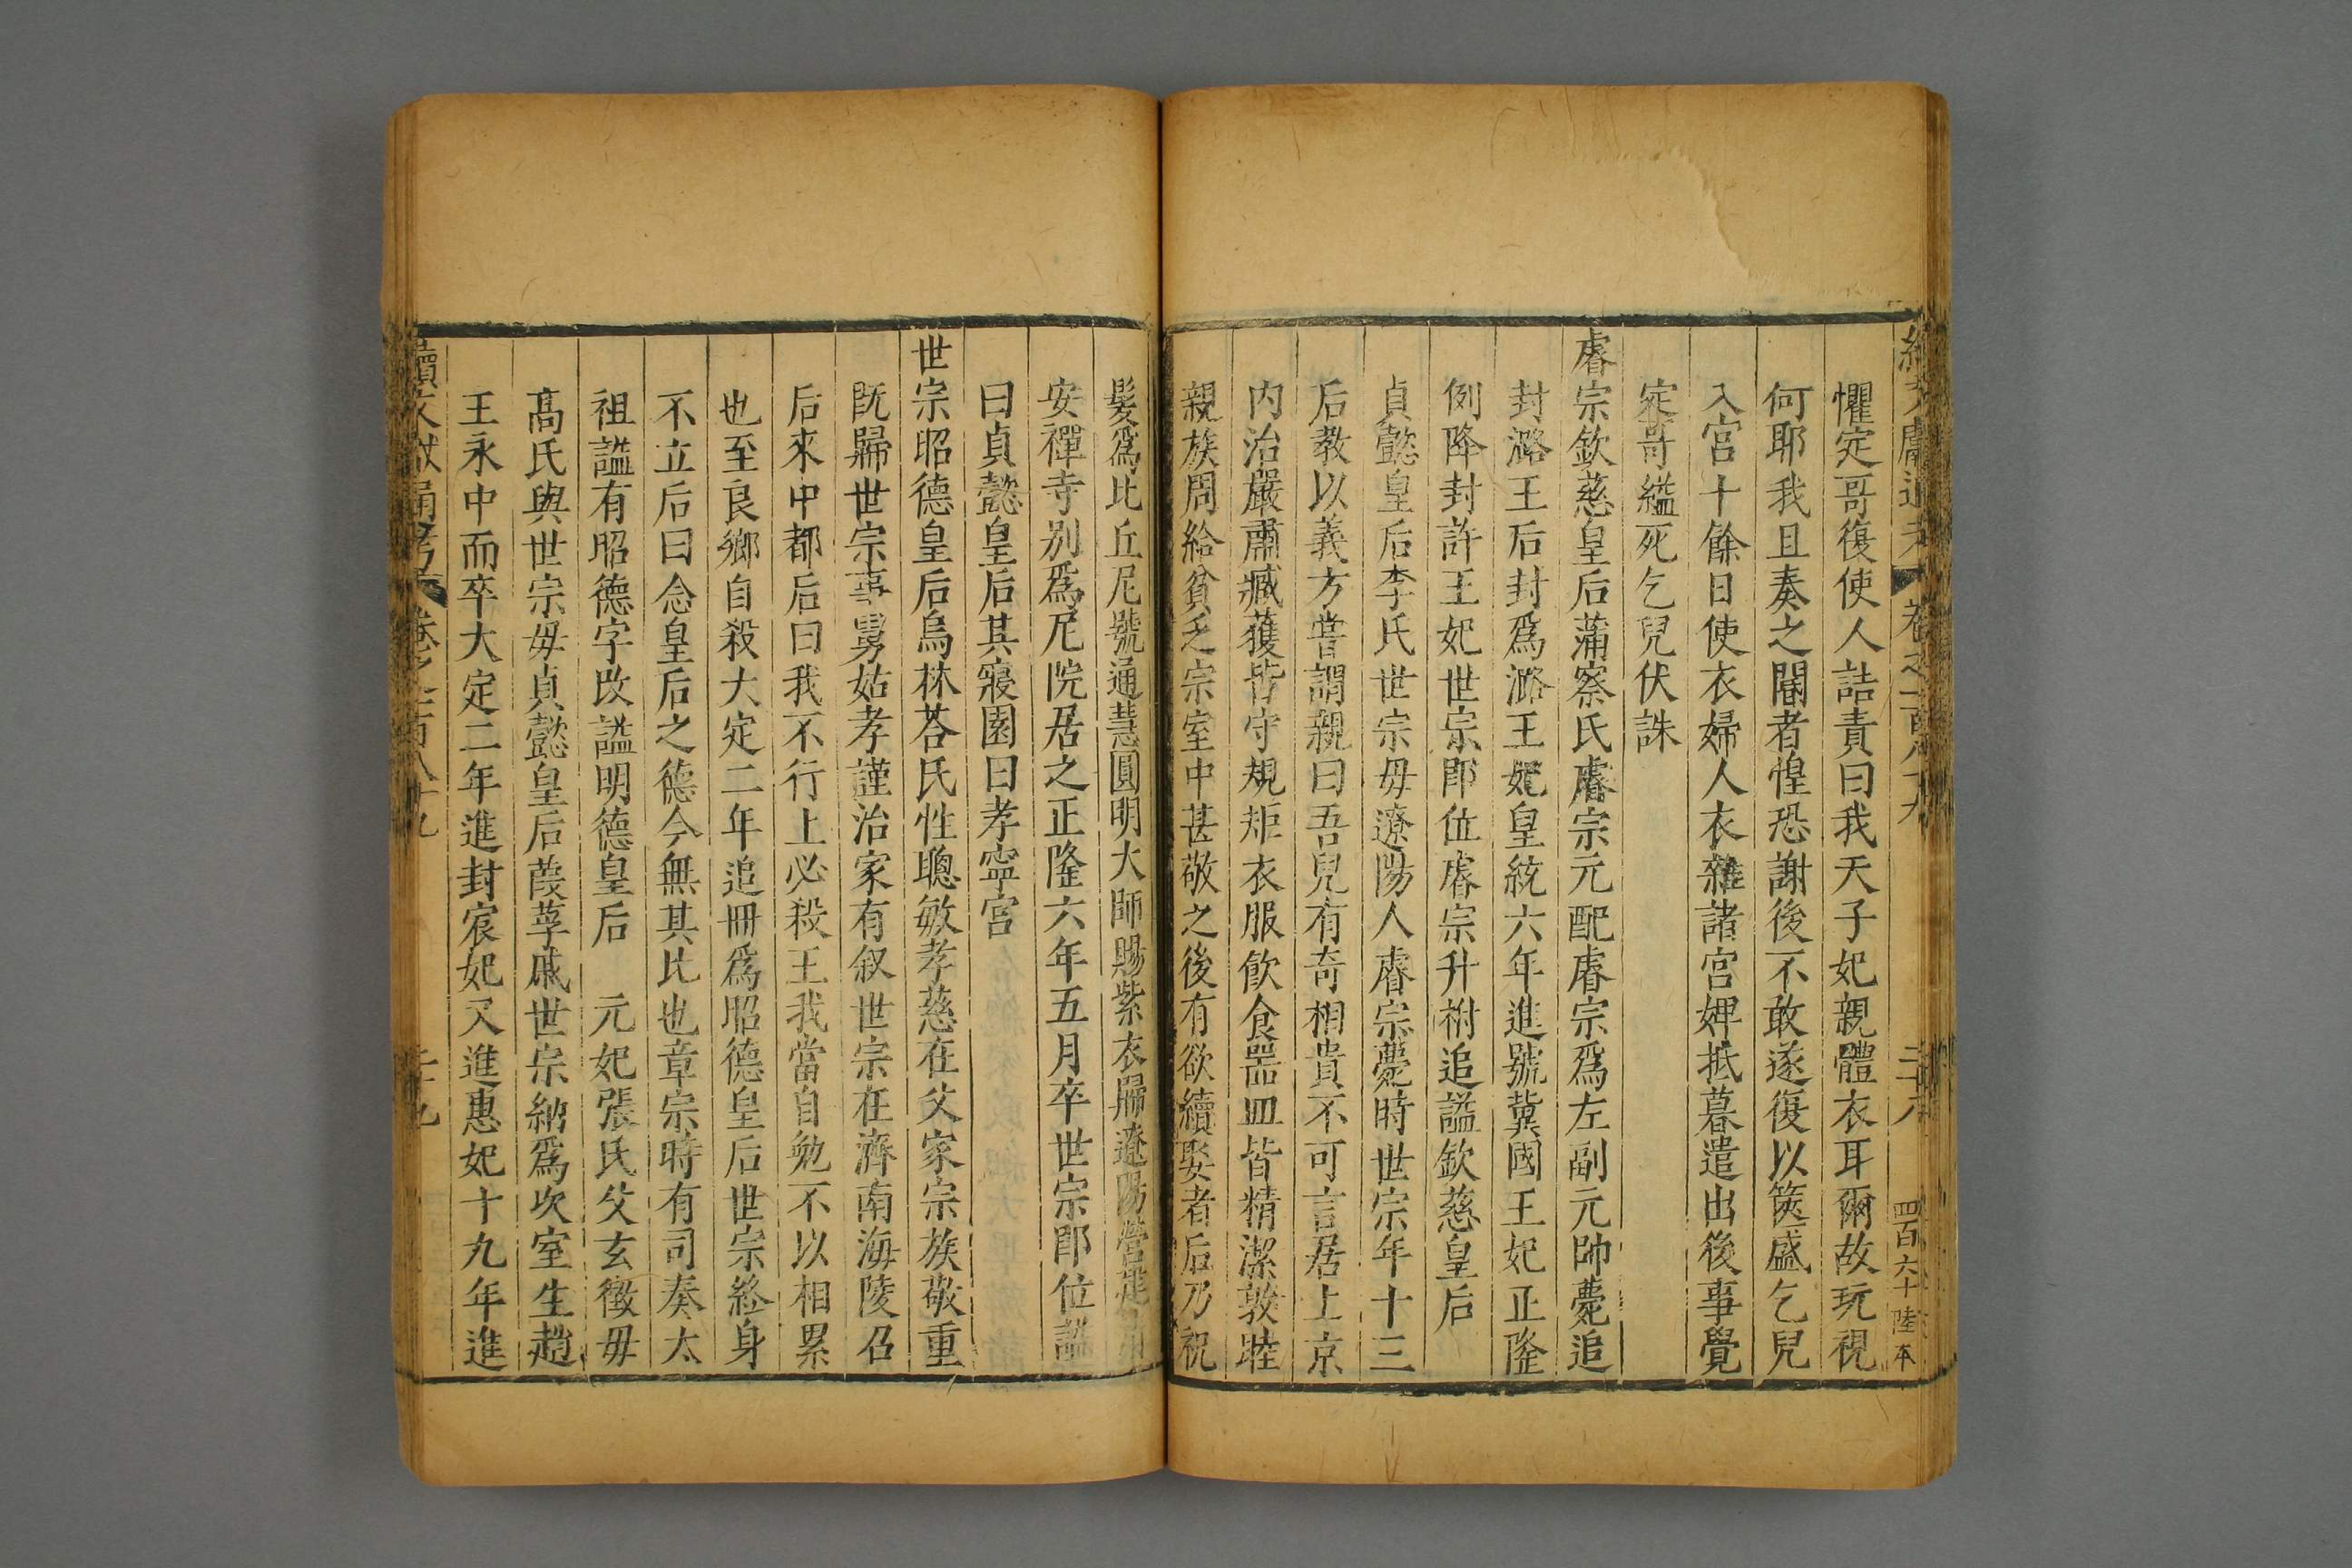 懼定哥復使人詰責曰我天子妃親體衣耳爾故玩視
何耶我且奏之閽者惶恐謝後不敢遂復以篋盛乞兒
入宮十餘日使衣婦人衣雜諸宮婢抵暮遣出後事覺
定哥縊死乞兒伏誅
睿宗欽慈皇后蒲察氏睿宗元配睿宗爲左副元帥薨追
封潞王后封爲潞王妃皇統六年進號冀國王妃正隆
例降封許王妃世宗即位睿宗升祔追謚欽慈皇后
貞懿皇后李氏世宗母遼陽人睿宗薨時世宗年十三
后教以義方嘗謂親曰吾兒有奇相貴不可言居上京
内治嚴肅臧獲皆守規矩衣服飲食器皿皆精潔敦睦
親族周給貧乏宗室中甚敬之後有欲續娶者后乃祝
髮爲比丘尼號通慧圓明大師賜紫衣歸遼陽營建
安禪寺别爲尼院居之正隆六年五月卒世宗即位謚
曰貞懿皇后其寢園曰孝寧宮
世宗昭德皇后烏林荅氏性聰敏孝慈在父家宗族敬重
既歸世宗事舅姑孝謹治家有叙世宗在濟南海陵召
后來中都后曰我不行上必殺王我當自勉不以相累
也至良鄉自殺大定二年追冊爲昭德皇后世宗終身
不立后曰念皇后之德今無其比也章宗時有司奏太
祖謚有昭德字改謚明德皇后　元妃張氏父玄徵母
高氏與世宗母貞懿皇后葭莩戚世宗納爲次室生趙
王永中而卒大定二年進封宸妃又進惠妃十九年進
續文獻通考　卷之一百八十九　二十九
四百六十　陸本